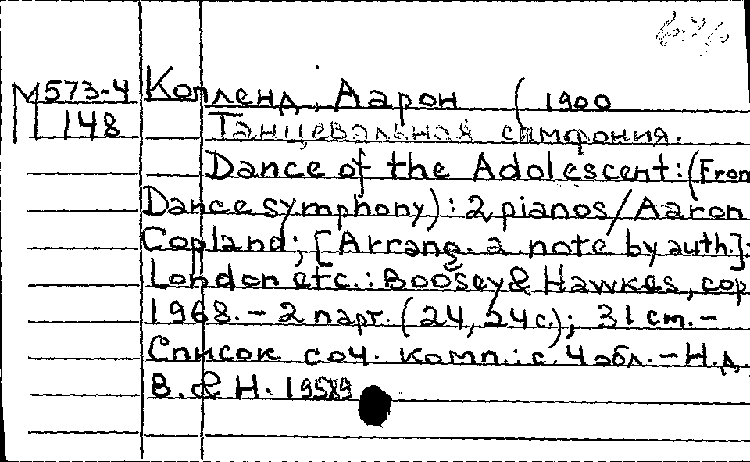 М573-4 Копленд, Аарон (1900
148 Танцевальная симфония.
Dance of the Adolescent: (From
Dance symphony): 2 pianos / Aaron
Copland; [Arrang. a note by auth.].
London etc.: Boosey & Hawkes, cop.
1968. – 2 парт. (24, 24 с.); 31 cm. –
Список соч. комп.: с. 4 обл. – Н.д.
B. & H. 19589